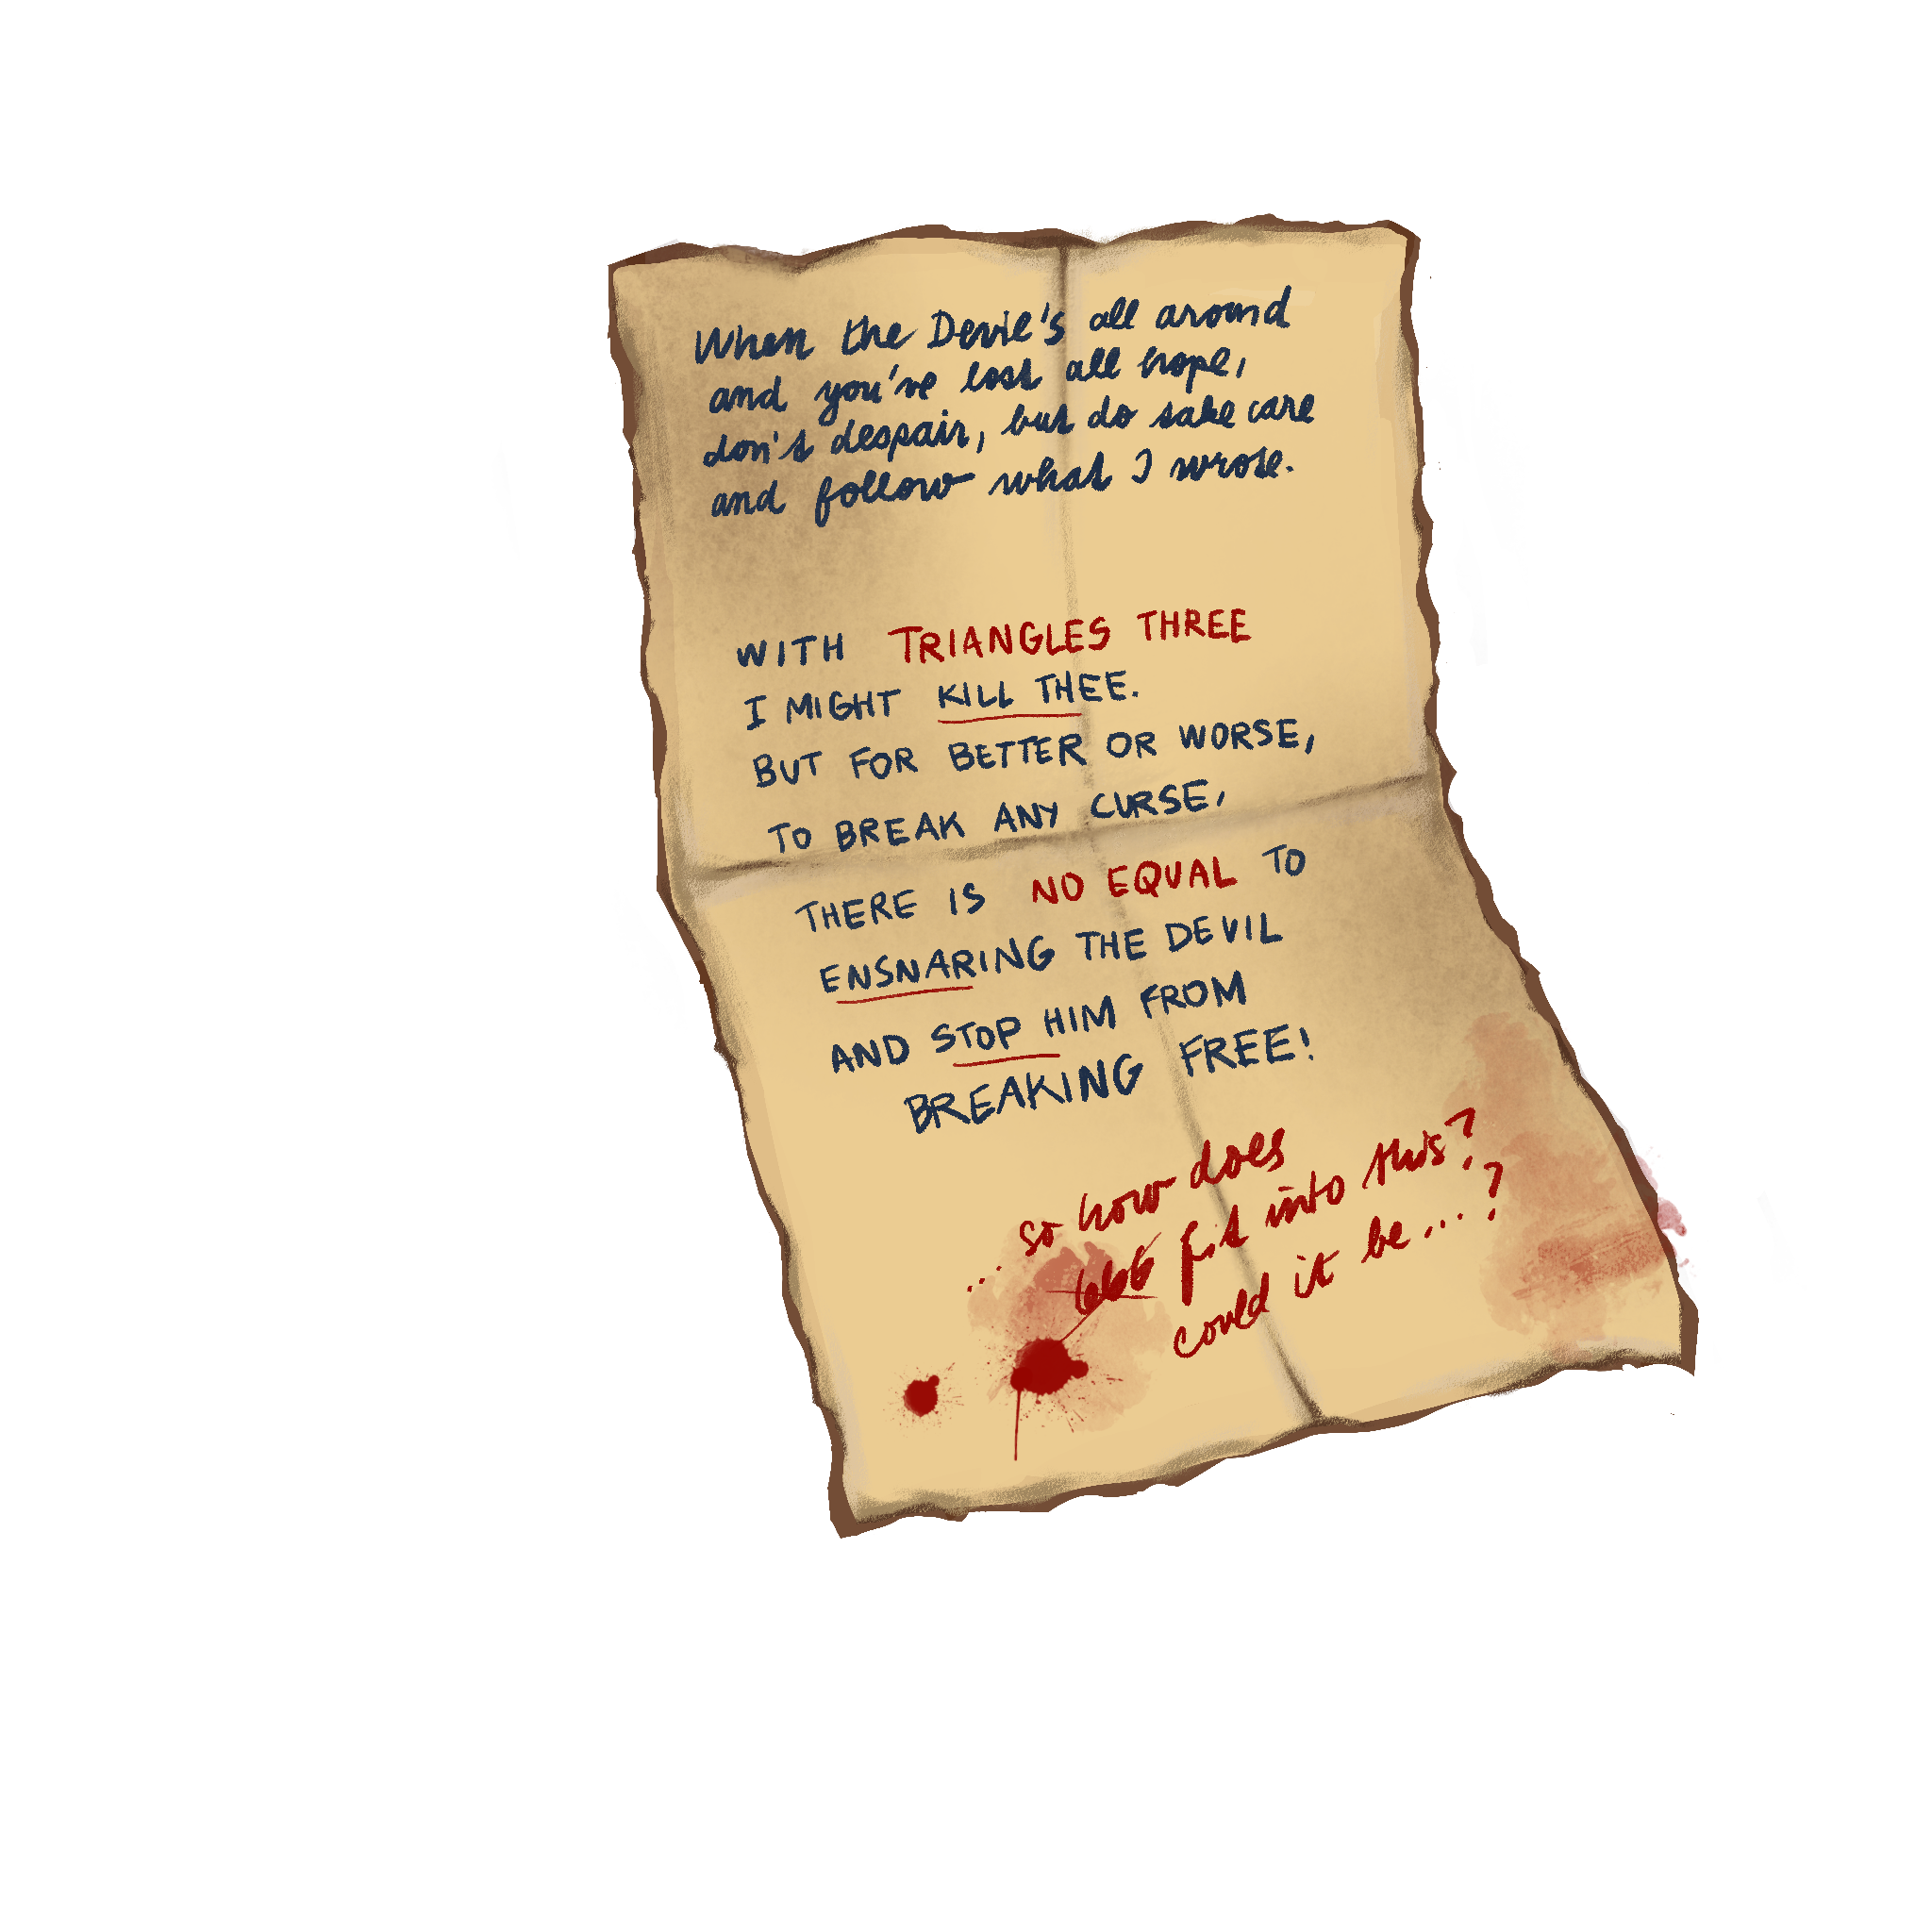 When the Devil's all around
and you've lost all hope,
don't despair, but do take care
and follow what I wrote.
WITH TRIANGLES THREE
I MIGHT KILL THEE.
BUT FOR BETTER OR WORSE,
TO BREAK ANY CURSE,
THERE IS NO EQUAL TO
ENSNARING THE DEVIL
AND STOP HIM FROM
BREAKING FREE!
... so how does
666 fit into this?
could it be...?